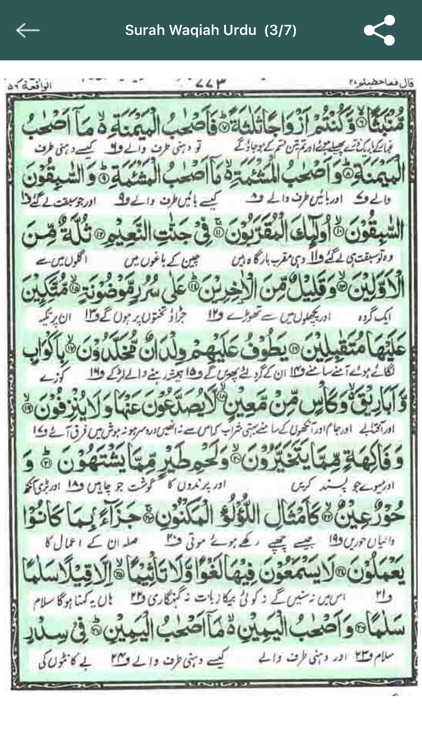 Surah Waqiah Urdu (3/7)
قال فما خطبكم ٢٧ ٧٧٣ الواقعة ٥٦
مُّنْۢبَثًّا ۙ۶ وَّكُنْتُمْ اَزْوَاجًا ثَلٰثَةً ؕ۷ فَاَصْحٰبُ الْمَيْمَنَةِ ۙ۬ مَاۤ اَصْحٰبُ
پھیلے ہوئے اور تم تین قسم کے ہوجاؤ گے تو دہنی طرف والے ف۶ کیسے دہنی طرف
الْمَيْمَنَةِ ؕ۸ وَاَصْحٰبُ الْمَشْـَٔمَةِ ۙ۬ مَاۤ اَصْحٰبُ الْمَشْـَٔمَةِ ؕ۹ وَالسّٰبِقُوْنَ
والے ف۷ اور بائیں طرف والے ف۸ کیسے بائیں طرف والے ف۹ اور جو سبقت لے گئے ف۱۰
السّٰبِقُوْنَ ۚۙ۱۰ اُولٰٓئِكَ الْمُقَرَّبُوْنَ ۚ۱۱ فِىْ جَنّٰتِ النَّعِيْمِ ۱۲ ثُلَّةٌ مِّنَ
وہ تو سبقت ہی لے گئے ف۱۱ وہی مقرب بارگاہ ہیں چین کے باغوں میں اگلوں میں سے
الْاَوَّلِيْنَ ۙ۱۳ وَقَلِيْلٌ مِّنَ الْاٰخِرِيْنَ ؕ۱۴ عَلٰى سُرُرٍ مَّوْضُوْنَةٍ ۙ۱۵ مُّتَّكِـِٕيْنَ
ایک گروہ اور پچھلوں میں سے تھوڑے ف۱۲ جڑاؤ تختوں پر ہوں گے ف۱۳ ان پر تکیہ
عَلَيْهَا مُتَقٰبِلِيْنَ ۱۶ يَطُوْفُ عَلَيْهِمْ وِلْدَانٌ مُّخَلَّدُوْنَ ۙ۱۷ بِاَكْوَابٍ
لگائے ہوئے آمنے سامنے ف۱۴ ان کے گرد لئے پھریں گے ف۱۵ ہمیشہ رہنے والے لڑکے ف۱۶ کوزے
وَّاَبَارِيْقَ ۙ۬ وَكَاْسٍ مِّنْ مَّعِيْنٍ ۙ۱۸ لَّا يُصَدَّعُوْنَ عَنْهَا وَلَا يُنْزِفُوْنَ ۙ۱۹
اور آفتابے اور جام اور آنکھوں کے سامنے بہتی شراب کہ اس سے نہ انہیں درد سر ہو نہ ہوش میں فرق آئے ف۱۷
وَفَاكِهَةٍ مِّمَّا يَتَخَيَّرُوْنَ ۙ۲۰ وَلَحْمِ طَيْرٍ مِّمَّا يَشْتَهُوْنَ ؕ۲۱ وَ
اور میوے جو پسند کریں اور پرندوں کا گوشت جو چاہیں ف۱۸ اور بڑی آنکھ
حُوْرٌ عِيْنٌ ۙ۲۲ كَاَمْثَالِ اللُّؤْلُؤِ الْمَكْنُوْنِ ۚ۲۳ جَزَآءًۢ بِمَا كَانُوْا
والیاں حوریں ف۱۹ جیسے چھپے رکھے ہوئے موتی ف۲۰ صلہ ان کے اعمال کا
يَعْمَلُوْنَ ۲۴ لَا يَسْمَعُوْنَ فِيْهَا لَغْوًا وَّلَا تَاْثِيْمًا ۙ۲۵ اِلَّا قِيْلًا سَلٰمًا
ف۲۱ اس میں نہ سنیں گے نہ کوئی بیکار بات نہ گنہگاری ف۲۲ ہاں یہ کہنا ہوگا سلام
سَلٰمًا ۲۶ وَاَصْحٰبُ الْيَمِيْنِ ۙ۬ مَاۤ اَصْحٰبُ الْيَمِيْنِ ؕ۲۷ فِىْ سِدْرٍ
سلام ف۲۳ اور دہنی طرف والے کیسے دہنی طرف والے ف۲۴ بے کانٹوں کی